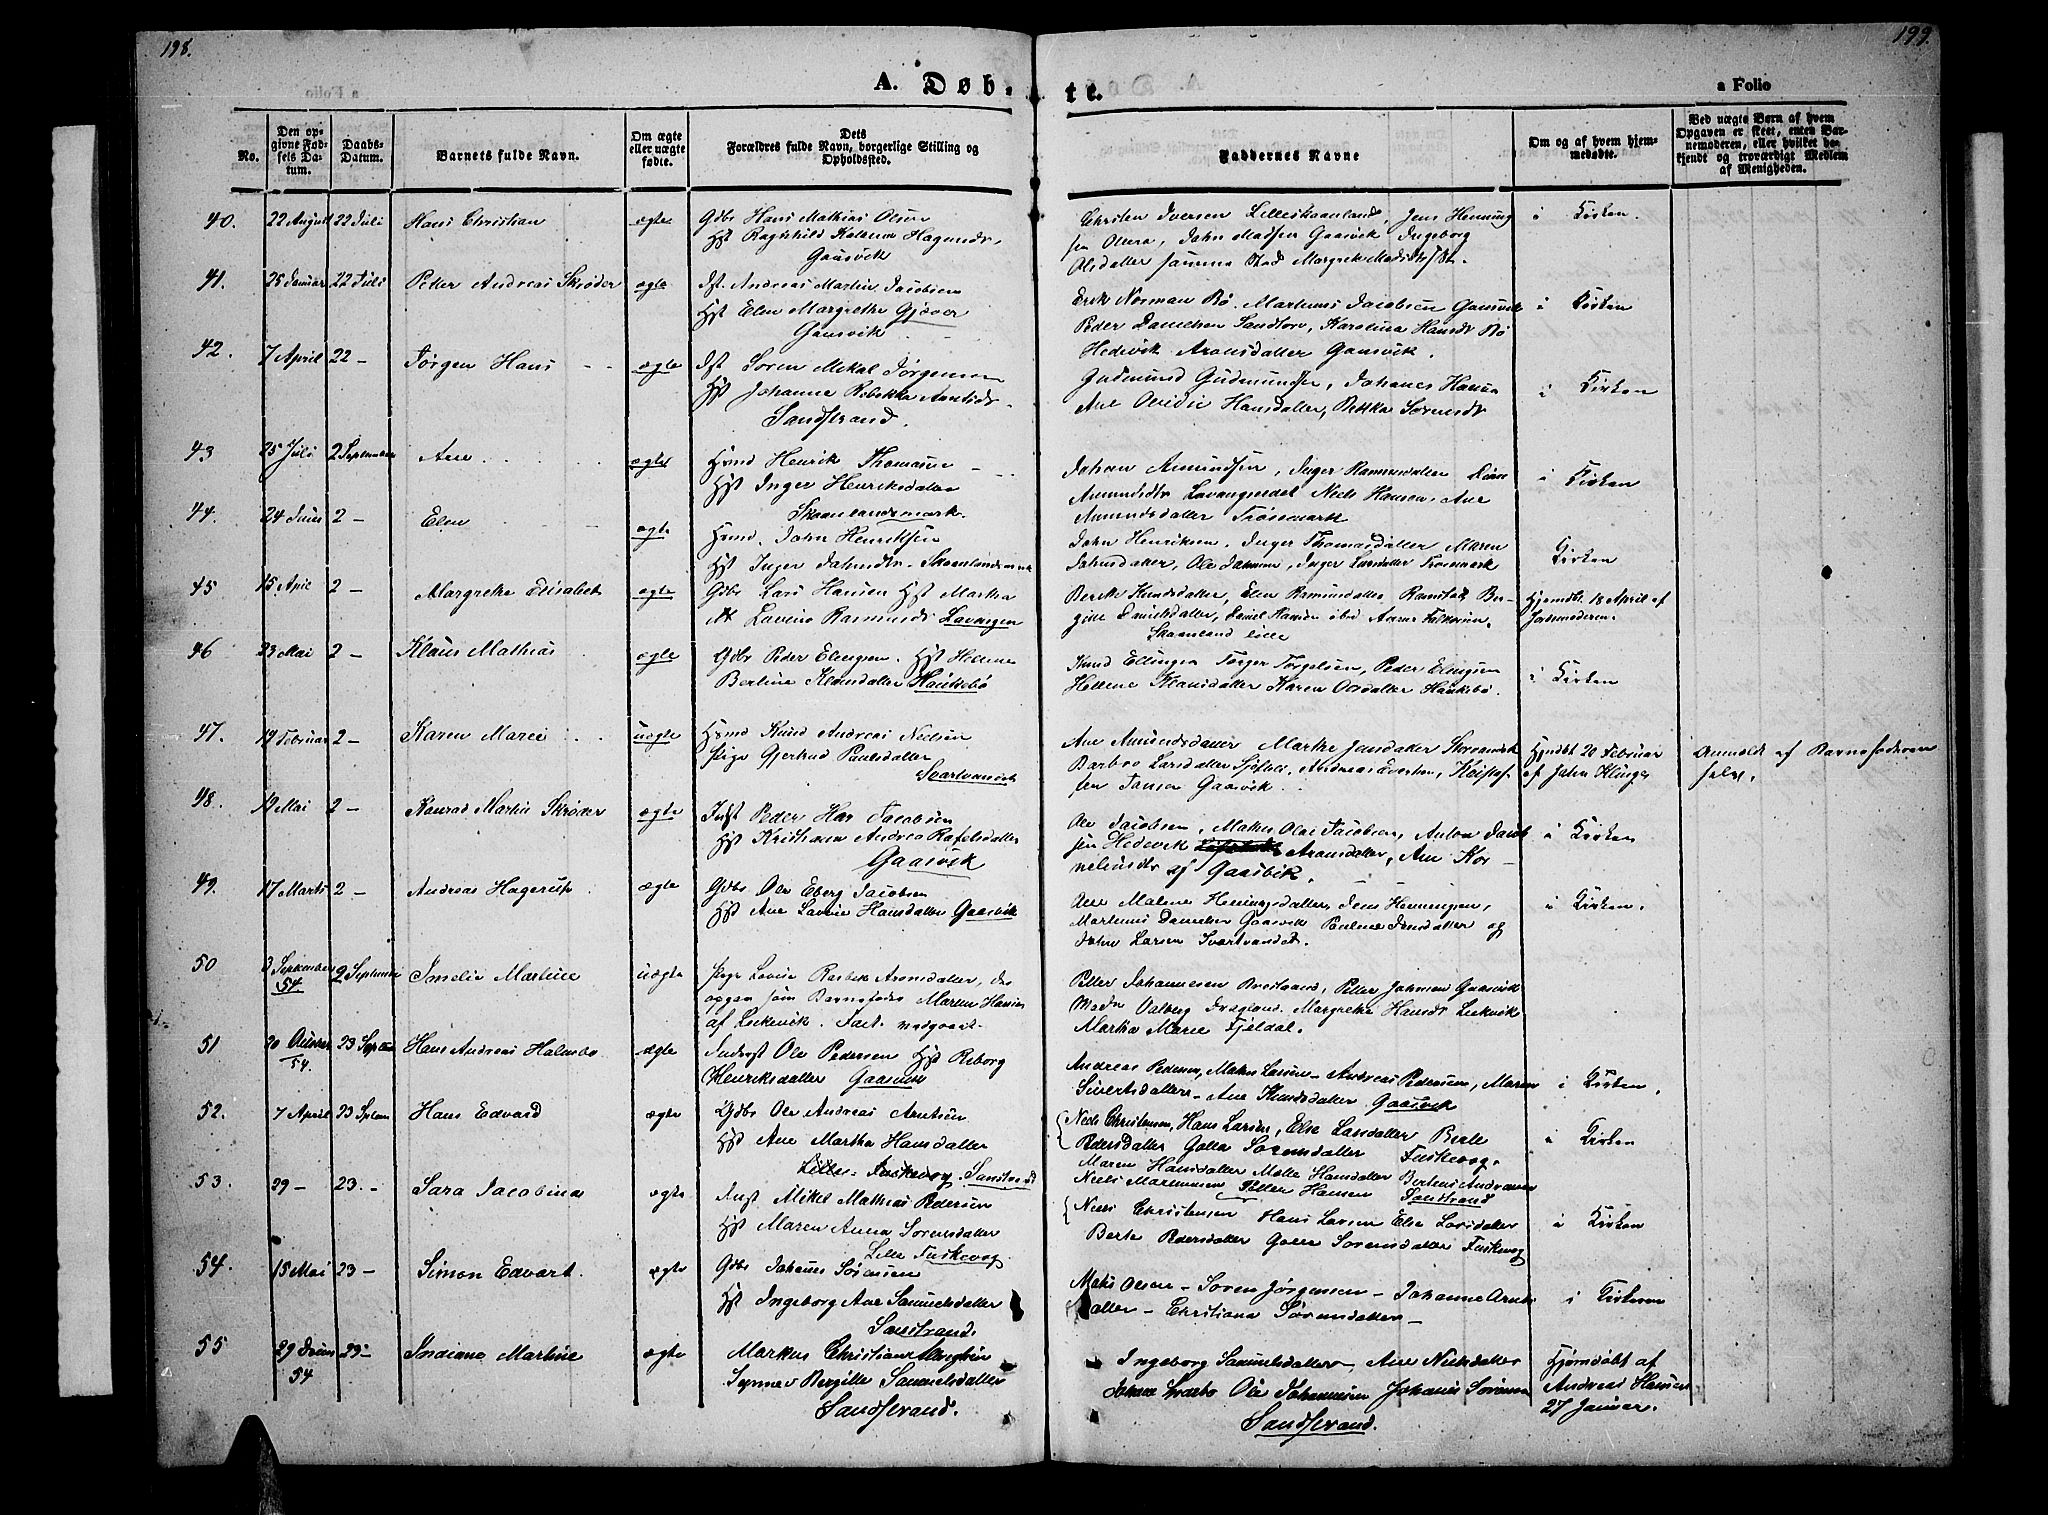 198.
199.
A. Døb-
te.
a Folio
No.
Den op-
givne Fød-
sels Da-
tum.
Daabs-
Datum.
Barnets fulde Navn.
Om ægte
eller uægte
fødte.
Dets
Forældres fulde Navn, borgerlige Stilling og
Opholdssted.
Faddernes Navne
Om og af hvem hjem-
medøbte.
Ved uægte Børn af hvem
Opgaven er skeet, enten Bar-
nemoderen, eller hvilket be-
kjendt og troværdigt Medlem
af Menigheden.
40. 22 August 22 Juli Hans Christian ægte Gdbr Hans Mathias Olsen
Hst Ragnhild Hagensdr.
Gaasvik
Christen Iversen Lilleskaanland, Jens Henning
sen John Madsen Gaasvik Ingeborg
Olsdatter samme Sted Margrete
i Kirken.
41. 25 Januar 22 Juli Peder Andreas Skrøder ægte Ist. Andreas Martin Jacobsen
Hst Elen Margrethe Gjæver
Gaasvik
Erik Norman Bø. Martinus Jacobsen Gaasvik
Peder Danielsen Sandtorv, Karolina Hansdr Bø
Hedevik Aronsdatter Gaasvik.
i Kirken
42. 7 April 22 - Jørgen Hans ægte Ist Søren Mikal Jørgensen
Hst Johanna Rebekka Arntsdr.
Sandstrand.
Gudmund Gudmundsen, Johanes Hansen
Ane Hansdatter, Sørensdr
i Kirken
43 25 Juli 2 September Ane ægte Hmd Henrik Thomasen
Hst Inger Henriksdatter
Skaanlandsmark.
Johan Amundsen, Inger Rasmusdatter
Amundsdtr Lavangseidet Niels Hansen, Ane
Amundsdatter Trøssemark
i Kirken
44. 24 Juni 2 - Elen ægte Hmd. John Henriksen
Hst Inger Johnsdtr. Skaanlandsmark
John Henriksen, Inger Thomasdatter Maren
Johnsdatter, Ole Johnsen, Inger Larsdatter Trøsemark
Kirken
45 15 April 2 - Margrethe Elisabet ægte Gdbr Lars Hansen Hst Martha
Lavine Rasmusdr Lavangen
Berith Knudsdatter, Elen Ramstad Ber-
gitte Danielsdatter, Daniel Hansen ibid
Skaanland lille
Hjemdbt. 18 April af
Jordmoderen.
46 23 Mai 2 - Klaus Mathias ægte Gdbr Peder Elingsen. Hst Hellene
Berline Klausdatter Haukebø
Knud Ellingsen Torger Torgelsen, Peder Elingsen
Hellene Klausdatter Karen Olsdatter Haukebø.
i Kirken
47. 19 Februar 2 - Karen Marei uægte Hmd Knud Andreas Nielsen
Pige Gjertrud Paulsdatter
Svartvandet
Ane Amundsdatter Marthe Jensdatter
Barbro Larsdatter Andreas Evertsen, Kristof-
fer Jansen Gaasvik
Hjmdbt 20 Februar
af John Klinge
Anmeldt af Barnefaderen
selv.
48. 19 Mai 2 - Konrad Martin Skrøder ægte Indst Peder Jacobsen
Hst Kristianna Andrea Rafelsdatter
Gaasvik
Ole Jacobsen, Mathis Olai Jacobsen, Anton Jacob
sen Hedevik Aronsdatter, Ane Kor-
neliusdtr af Gaasvik.
i Kirken
49. 17 Marts 2 - Andreas Hagerup. ægte Gdbr Ole Eberg Jacobsen
Hst Ane Lavine Hansdatter Gaasvik
Ane Malene Henningsdatter, Jens Henningsen,
Martinus Danielsen Gaasvik Pauline Jensdatter og
John Larsen Svartvandet.
i Kirken.
50 3 September
54. 2 September Amelie Martine uægte Pige Lovise Aronsdatter, der
opgav som Barnefader Maren Hansen
af Leikvik.
Petter Johannesen Petter Johnsen Gaasvik
Aalberg Margrethe Hansdr Leikvik
Martha Marie Fjeldal.
51 20 October
54. 23 Septem Hans Andreas Holmebo ægte Inderst Ole Pedersen Hst Reborg
Henriksdatter Gaasvik
Andreas Pedersen, Mathis Larsen - Andreas Pedersen, Maren
Sivertsdatter - Ane Knudsdatter Gaasvik
i Kirken.
52. 7 April 23 Sptem Hans Edvard ægte Gdbr Ole Andreas Arntsen
Hst Ane Martha Hansdatter
Lille - Fuskevog. Sandstrand
Niels Christensen, Hans Larsen, Else Larsdatter Berte
Pedersdatter Golla Sørensdatter Fuskevog.
Maren Hansdatter Malle Hansdatter Berteus Andersen
Niels Petter Hansen Sandstrand
i Kirken
53. 29 - 23. - Sara Jacobina ægte Indst Mikel Mathias Pedersen
Hst Maren Anna Sørensdatter
Lille Fuskevog.
Niels Christensen Hans Larsen Else Larsdatter
Berte Pedersdatter Golla Sørensdatter Fuskevog
i Kirken
54. 15 Mai 23 - Simon Edvart. ægte Gdbr Johannes Sørensen
Hst Ingeborg Ane Samuelsdatter
Sanstrand.
Mathis Olsen - Søren Jørgensen - Johanne Arnts
datter - Christiana Sørensdatter -
i Kirken
55 29
54 23 - Indiane Martine ægte Markus Christian
Synnev Bergitte Samuelsdatter
Sandstrand.
Ingeborg Samuelsdatter, Ane Nielsdatter
Ole Johannesen Johanes Sørensen
Sandstrand.
Hjemdøbt af
Andreas Hansen
27 Januar.